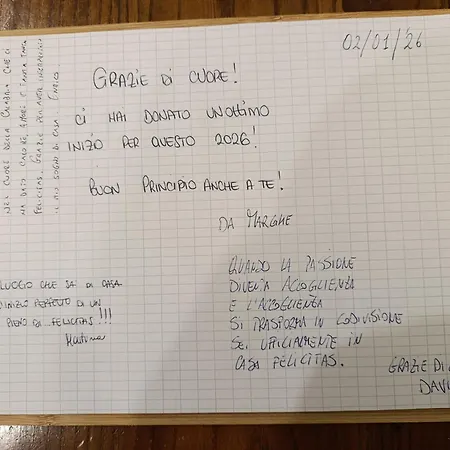 02/01/'26
GRAZIE DI CUORE!
CI HAI DONATO UN OTTIMO
INIZIO PER QUESTO 2026!
BUON PRINCIPIO ANCHE A TE!
DA MARGHE
NEL CUORE DELLA CALABRIA CHE CI
HA DATO CALORE, AMORE E TANTA TANTA
FELICITAS. GRAZIE PER AVER
IL MIO SOGNO DI CASA
LUOGO CHE SA DI CASA
INIZIO PERFETTO DI UN
PIENO DI FELICITAS!!!
Martina
QUANDO LA PASSIONE
DIVENTA ACCOGLIENZA
E L'ACCOGLIENZA
SI TRASFORMA IN CODIVISIONE
SEI UFFICIALMENTE IN
CASA FELICITAS.
GRAZIE DI
DAVI